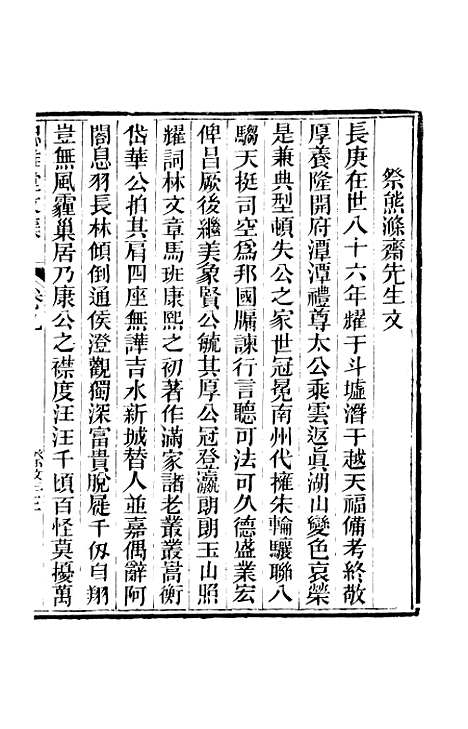 祭熊滌齋先生文
長庚在世八十六年耀于斗墟潛于越天福備考終敬
厚養隆開府潭潭禮尊太公乘雲返眞湖山變色哀榮
是兼典型頓失公之家世冠冕南州代擁朱輪驤聯八
騶天挺司空爲邦國牖諫行言聽可法可久德盛業宏
俾昌厥後繼美象賢公毓其厚公冠登瀛朗朗玉山照
耀詞林文章馬班康熙之初著作滿家諸老叢叢嵩衡
岱華公拍其肩四座無譁吉水新城替人並嘉偶辭阿
閣息羽長林傾倒通侯澄觀獨深富貴脫屣千仭自翔
豈無風霾巢居乃康公之襟度汪汪千頃百怪莫擾萬